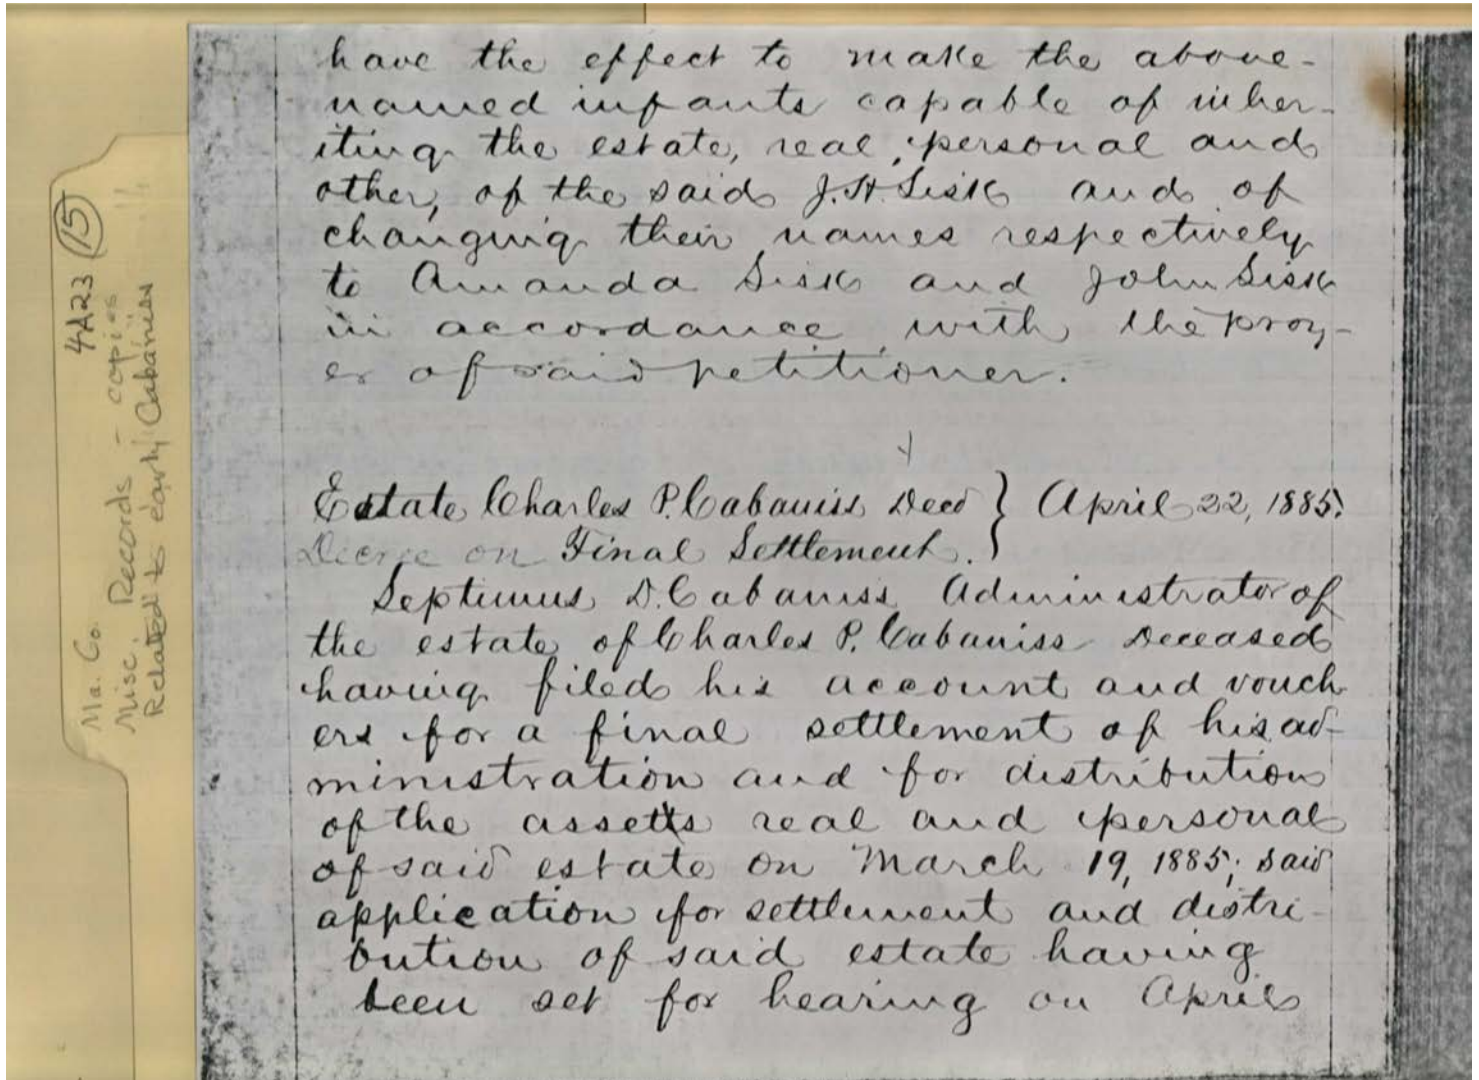 have the effect to make the above-
named infants capable of inher-
iting the estate, real, personal and
other, of the said J.H. Sisk and of
changing their names respectively
to Amanda Sisk and John Sisk
in accordance with the pray-
er of said petitioner.
Estate Charles P. Cabaniss Decd } April 22, 1885.
Decree on Final Settlement.
Septimus D. Cabaniss Administrator of
the estate of Charles P. Cabaniss Deceased
having filed his account and vouch
ers for a final settlement of his ad-
ministration and for distribution
of the assetts real and personal
of said estate on March 19, 1885; said
application for settlement and distri-
bution of said estate having
been set for hearing on April
4A23 15
Ma. Co.
Misc. Records - copies
Related to early Cabaniss